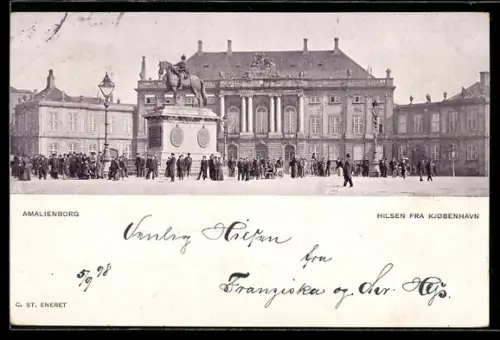 AMALIENBORG
HILSEN FRA KJØBENHAVN
Venlig Hilsen
fra
5/9 98
Franziska og Chr.
C. ST. ENERET